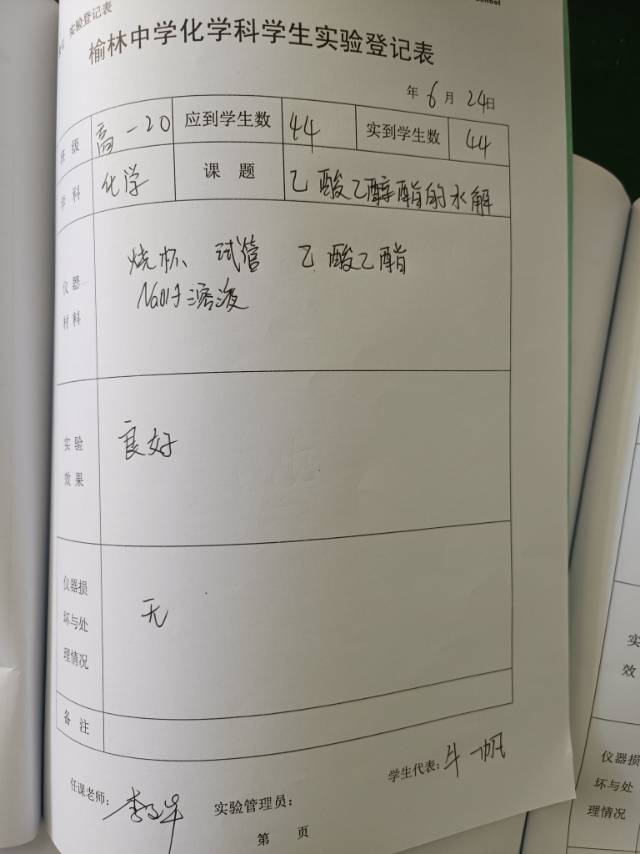 实验登记表
榆林中学化学科学生实验登记表
年 6 月 24日
班 级 高一20 应到学生数 44 实到学生数 44
学 科 化学 课 题 乙酸乙醇酯的水解
仪 器 材 料 烧杯 试管 乙酸乙酯
NaOH溶液
实 验 效 果 良好
仪器损坏与处理情况 无
备 注
任课老师: 实验管理员: 学生代表: 牛一帆
第 页
实
效
仪器损
坏与处
理情况